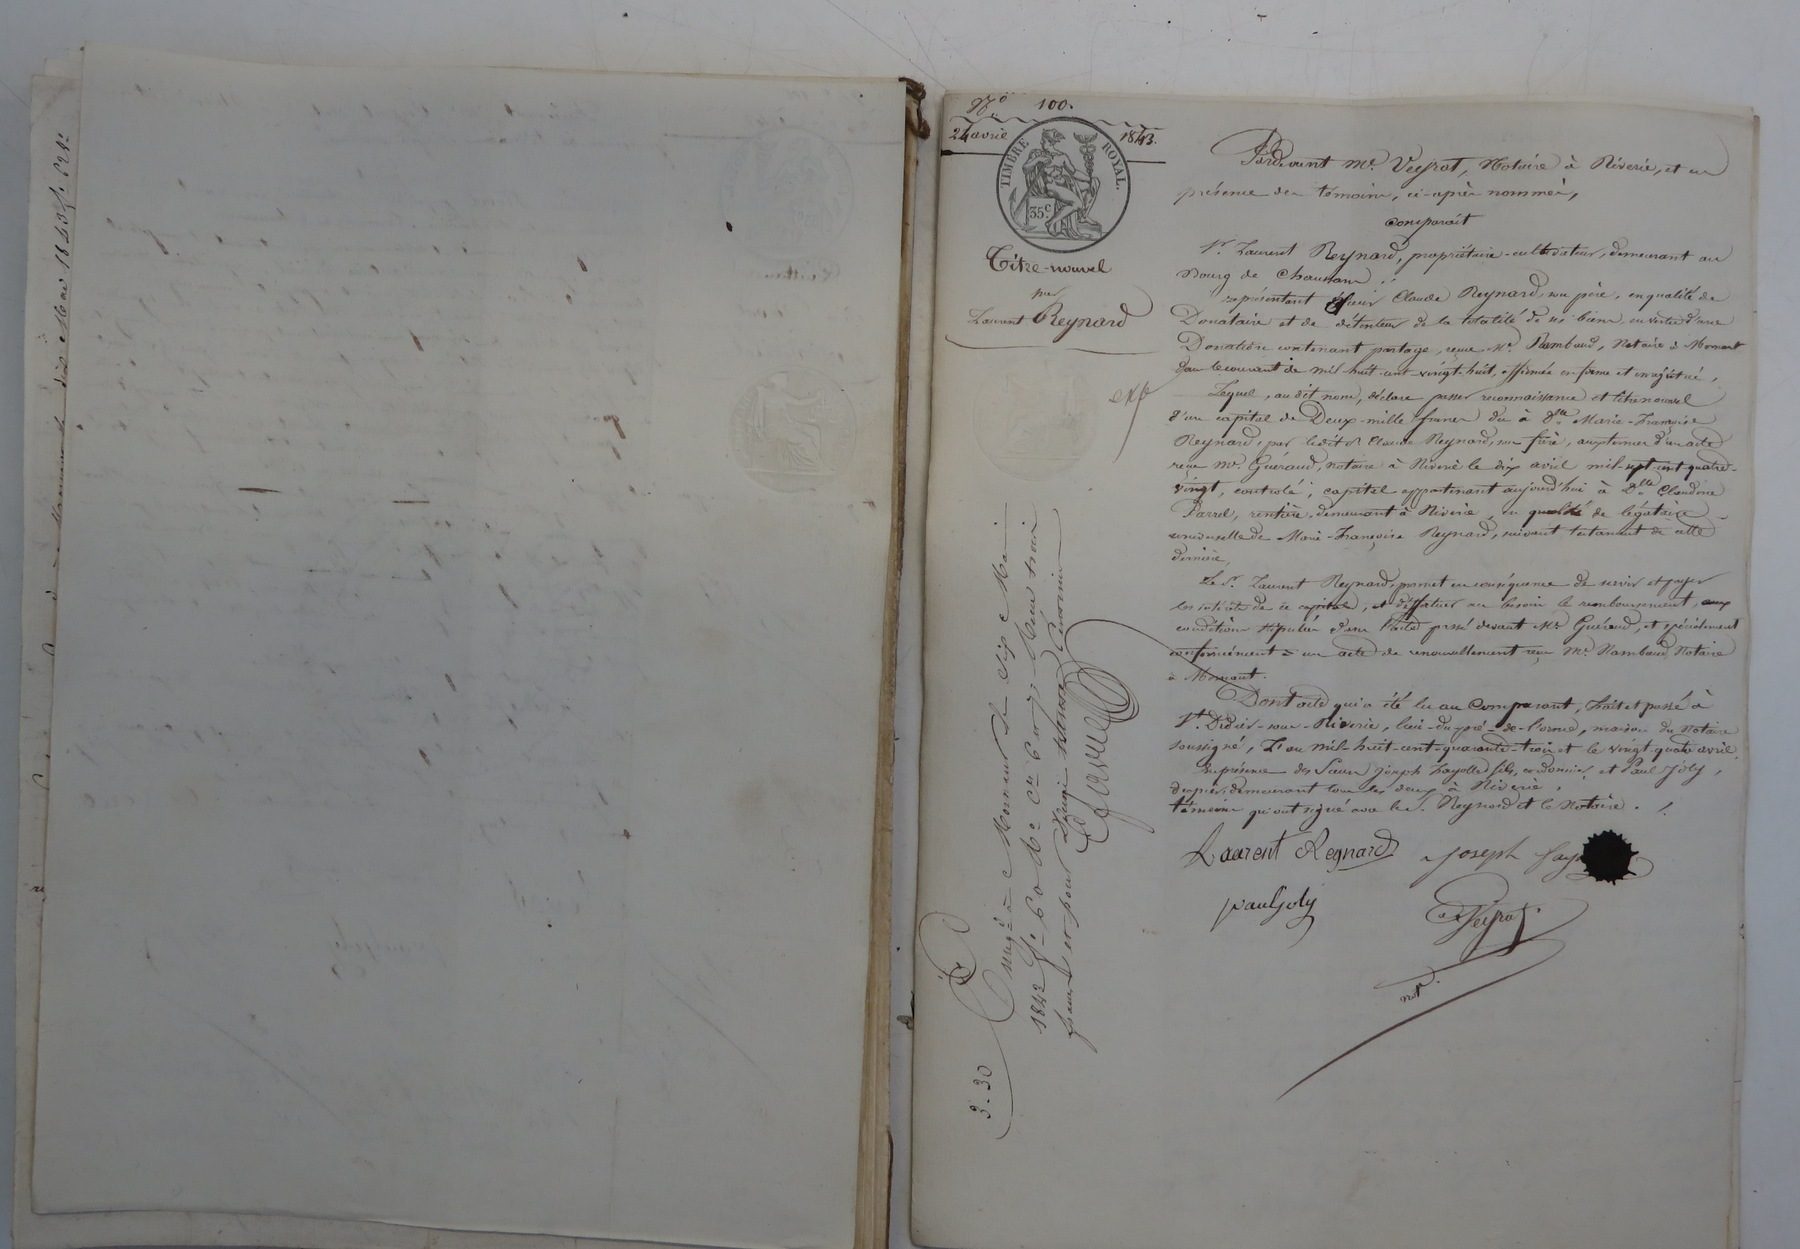 N° 100.
24 avril 1843.
TIMBRE ROYAL.
35c
Titre-nouvel
par
Laurent Reynard
exp
Pardevant Me. Veyrat, Notaire à Riverie, et en
présence des témoins, ci-après nommés,
Comparait
Sr. Laurent Reynard, propriétaire-cultivateur, demeurant au
Bourg de Chaussan;
représentant Sieur Claude Reynard, son père, en qualité de
Donataire et de détenteur de la totalité de ses biens, en vertu d'une
Donation contenant partage, reçue Me. Rambaud, Notaire à Mornant
dans le courant de mil-huit-cent-vingt-huit, en forme et enregistrée,
Lequel, au dit nom, déclare passer reconnaissance et titre nouvel
d'un capital de Deux-mille francs dû à Dlle. Marie-Françoise
Reynard, par ledit Sr. Claude Reynard, son frère, aux termes d'un acte
reçu Me. Guéraud, notaire à Riverie le dix avril mil-sept-cent-quatre-
vingt, controlé; capital appartenant aujourd'hui à Dlle. Claudine
rentière, demeurant à Riverie, en qualité de légataire
universelle de Marie-Françoise Reynard, suivant testament de cette
dernière,
Le Sr. Laurent Reynard, promet en conséquence de servir et payer
les intérêts de ce capital, et d'effectuer au besoin le remboursement, aux
conditions stipulées dans l'acte passé devant Me. Guéraud, et spécialement
conformément à un acte de renouvellement reçu Me. Rambaud, Notaire
à Mornant.
Dont acte qui a été lu au Comparant, Fait et passé à
St. Didier-sous-Riverie, lieu-du-pré-de-l'orme, maison du Notaire
soussigné, L'an mil-huit-cent-quarante-trois et le vingt-quatre avril
en présence des Sieurs Joseph Fayolle fils, cordonnier, et Paul Joly,
demeurant tous les deux à Riverie,
témoins qui ont signé avec le Sr. Reynard et le Notaire.
Laurent Regnard
Joseph
paul joly
Veyrat
not.
Enregé. à Mornant le dix Mai
1843 fo. 60 Ro. Ces. 6 et 7. Reçu trois
francs et pour trente centimes
3-30